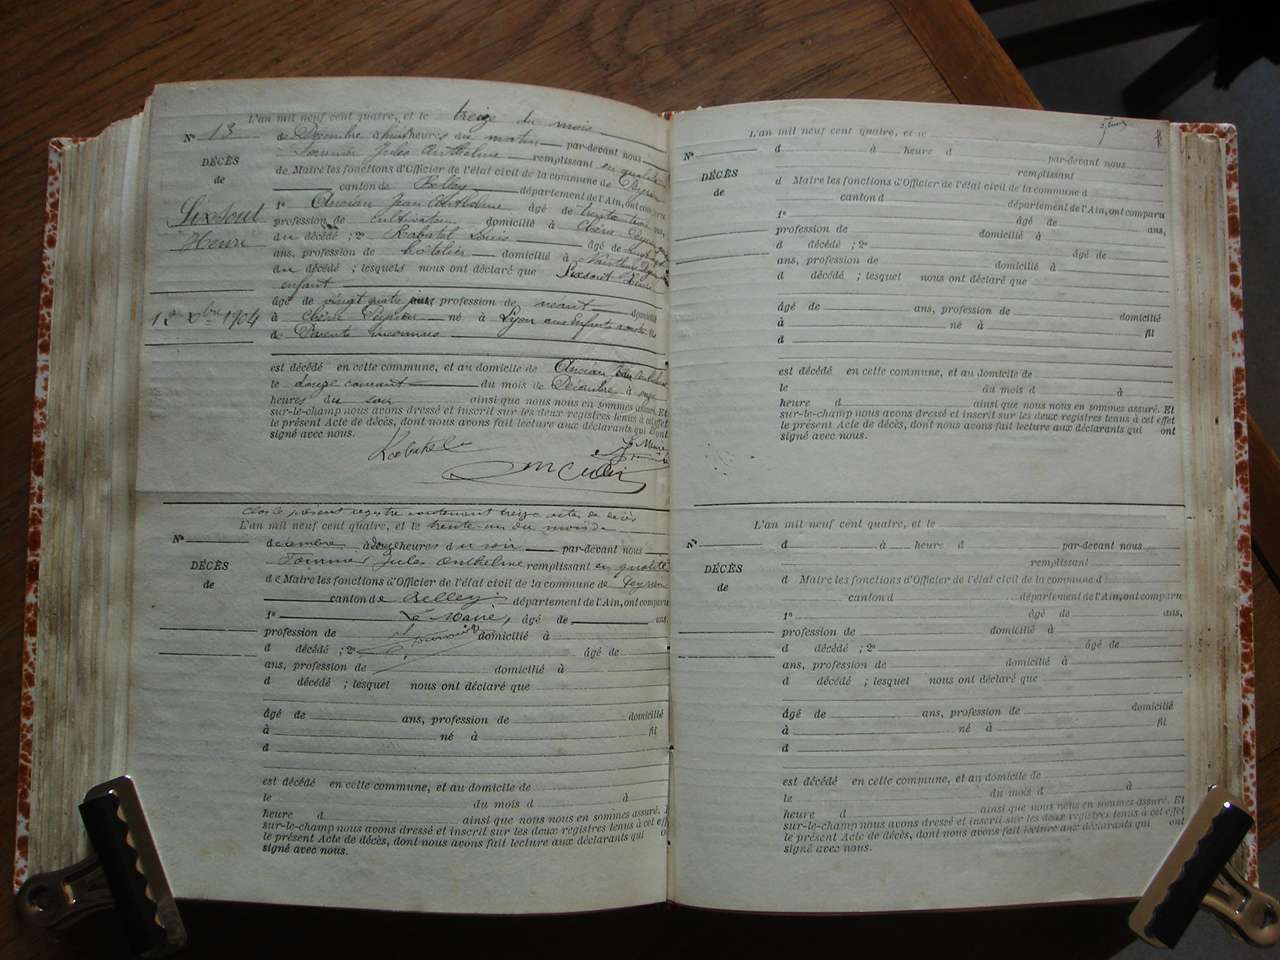 L'an mil neuf cent quatre, et le treize du mois
N° 13 de Décembre à huit heures du matin par-devant nous
DÉCÈS
de
Jules Anthelme remplissant en qualité
de Maire les fonctions d'Officier de l'état civil de la commune de
canton de Belley département de l'Ain, ont comparu
Henri
1° Ancian Jean âgé de trente trois ans,
profession de cultivateur domicilié à
du décédé ; 2° Rabatel Louis âgé de
ans, profession de hôtelier domicilié à
du décédé ; lesquels nous ont déclaré que Henri
enfant
12 Xbre 1904
âgé de vingt quatre jours profession de néant domicilié
à chez Ancian né à Lyon aux Enfants fils
de Parents Inconnus
est décédé en cette commune, et au domicile de Ancian Jean
le douze courant du mois de Décembre à onze
heures du soir ainsi que nous nous en sommes assuré. Et
sur-le-champ nous avons dressé et inscrit sur les deux registres tenus à cet effet
le présent Acte de décès, dont nous avons fait lecture aux déclarants qui ont
signé avec nous.
Rabatel
Le Maire
Ancian
Clos le présent registre contenant treize actes de décès
L'an mil neuf cent quatre, et le trente-un du mois de
N° décembre à douze heures du soir par-devant nous
DÉCÈS
de
Jules Anthelme remplissant en qualité
de Maire les fonctions d'Officier de l'état civil de la commune de Peyrieu
canton de Belley département de l'Ain, ont comparu
1° Le Maire, âgé de ans,
profession de domicilié à
d décédé ; 2° âgé de
ans, profession de domicilié à
d décédé ; lesquel nous ont déclaré que
âgé de ans, profession de domicilié
à né à fil
d
est décédé en cette commune, et au domicile de
le du mois d à
heure d ainsi que nous nous en sommes assuré. Et
sur-le-champ nous avons dressé et inscrit sur les deux registres tenus à cet effet
le présent Acte de décès, dont nous avons fait lecture aux déclarants qui ont
signé avec nous.
L'an mil neuf cent quatre, et le
N° d à heure d par-devant nous
DÉCÈS
de
remplissant
d Maire les fonctions d'Officier de l'état civil de la commune d
canton d département de l'Ain, ont comparu
1° âgé de ans,
profession de domicilié à
d décédé ; 2° âgé de
ans, profession de domicilié à
d décédé ; lesquel nous ont déclaré que
âgé de ans, profession de domicilié
à né à fil
d
est décédé en cette commune, et au domicile de
le du mois d à
heure d ainsi que nous nous en sommes assuré. Et
sur-le-champ nous avons dressé et inscrit sur les deux registres tenus à cet effet
le présent Acte de décès, dont nous avons fait lecture aux déclarants qui ont
signé avec nous.
L'an mil neuf cent quatre, et le
N° d à heure d par-devant nous
DÉCÈS
de
remplissant
d Maire les fonctions d'Officier de l'état civil de la commune d
canton d département de l'Ain, ont comparu
1° âgé de ans,
profession de domicilié à
d décédé ; 2° âgé de
ans, profession de domicilié à
d décédé ; lesquel nous ont déclaré que
âgé de ans, profession de domicilié
à né à fil
d
est décédé en cette commune, et au domicile de
le du mois d à
heure d ainsi que nous nous en sommes assuré. Et
sur-le-champ nous avons dressé et inscrit sur les deux registres tenus à cet effet
le présent Acte de décès, dont nous avons fait lecture aux déclarants qui ont
signé avec nous.